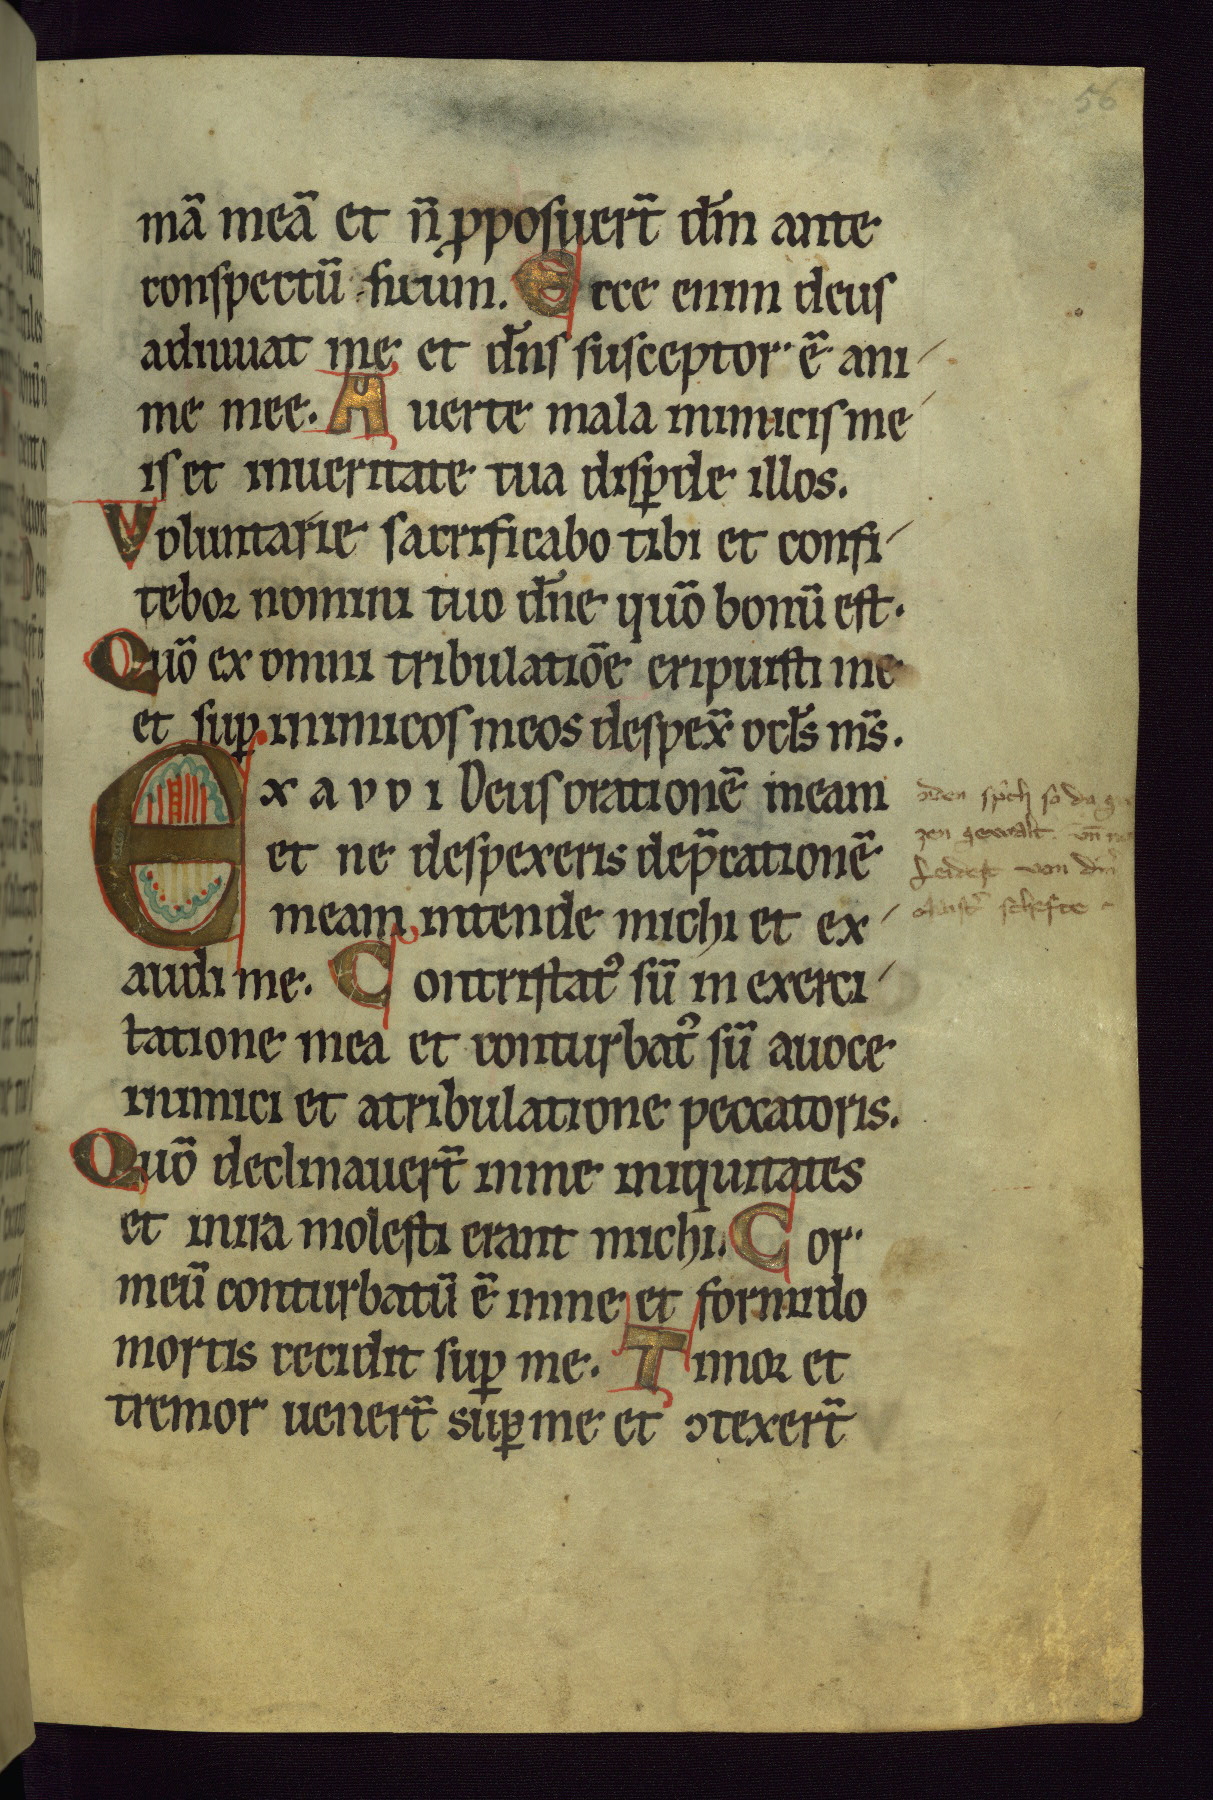 56
mā meā et n̄ ꝓposuert̄ dn̄m ante
conspectū suum. Ecce enim deus
adiuuat me et dn̄s susceptor ē ani
me mee. Auerte mala inimicis me
is et inueritate tua disꝑde illos.
Voluntarie sacrificabo tibi et confi
tebor nomini tuo dn̄e quō bonū est.
Quō ex omni tribulatiōe eripuisti me
et suꝑ inimicos meos despex̄ ocl̄s m̄s.
Exavdi Deus orationē meam
et ne despexeris dep̄cationē
meam intende michi et ex
audi me. Contristatꝰ sū in exerci
tatione mea et conturbatꝰ sū auoce
inimici et atribulatione peccatoris.
Quō declinauert̄ inme iniquitates
et inira molesti erant michi. Cor
meū conturbatū ē inme et formido
mortis cecidit suꝑ me. Timor et
tremor uenert̄ suꝑ me et ↄtexert̄
so du
gewalt vn̄
von